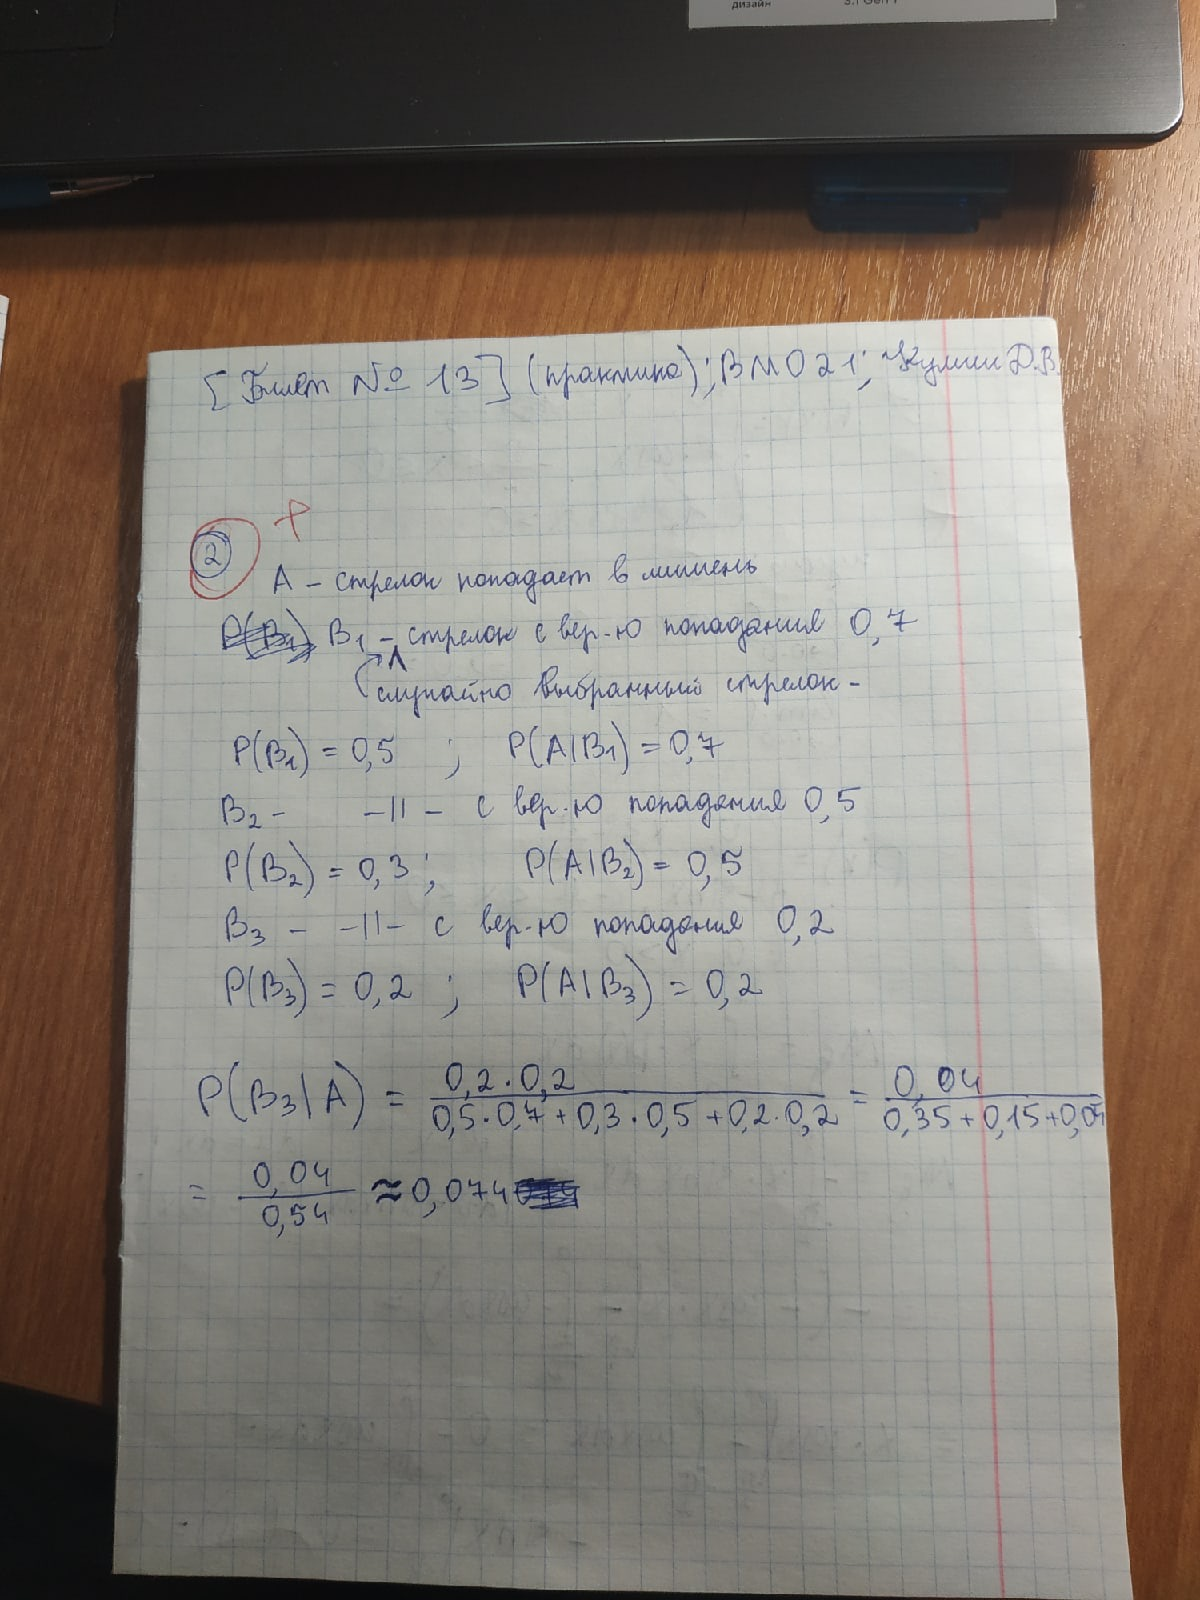 дизайн
[Билет № 13] (практика); ВМО21; Кулик Д.В.
+
2
А – стрелок попадает в мишень
B1 – стрелок с вер-ю попадания 0,7
случайно выбранный стрелок -
P(B1) = 0,5 ; P(A|B1) = 0,7
B2 - -||- с вер-ю попадания 0,5
P(B2) = 0,3 ; P(A|B2) = 0,5
B3 - -||- с вер-ю попадания 0,2
P(B3) = 0,2 ; P(A|B3) = 0,2
P(B3|A) = (0,2·0,2)/(0,5·0,7+0,3·0,5+0,2·0,2) = 0,04/(0,35+0,15+0,04)
= 0,04/0,54 ≈ 0,074